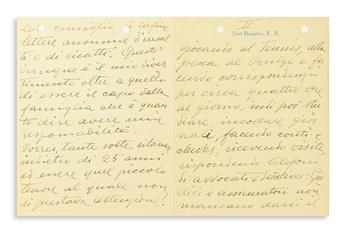 loro consiglio, e infine
lettere anonime d'insul
ti e di ricatti. Questo
dunque è il mio diver
timento oltre a quello
di essere il capo della
famiglia che è quan
to dire avere una
responsabilità.
Vorrei tante volte ritornare
indietro di 25 anni
ed essere quel piccolo
tenore al quale non
si prestava attenzione!
II
East Hampton, L. I.
giocando al tennis, alla
pesca, al bridge e fa
cendo corrispondenza
per circa quattro ore
al giorno, mi poi stu
diare, incodare gior
nali, facendo conti e
checks, ricevendo visite
rispondendo telefoni
di avvocati e detectives. Giu
dici e assicuratori non
mancano darci il